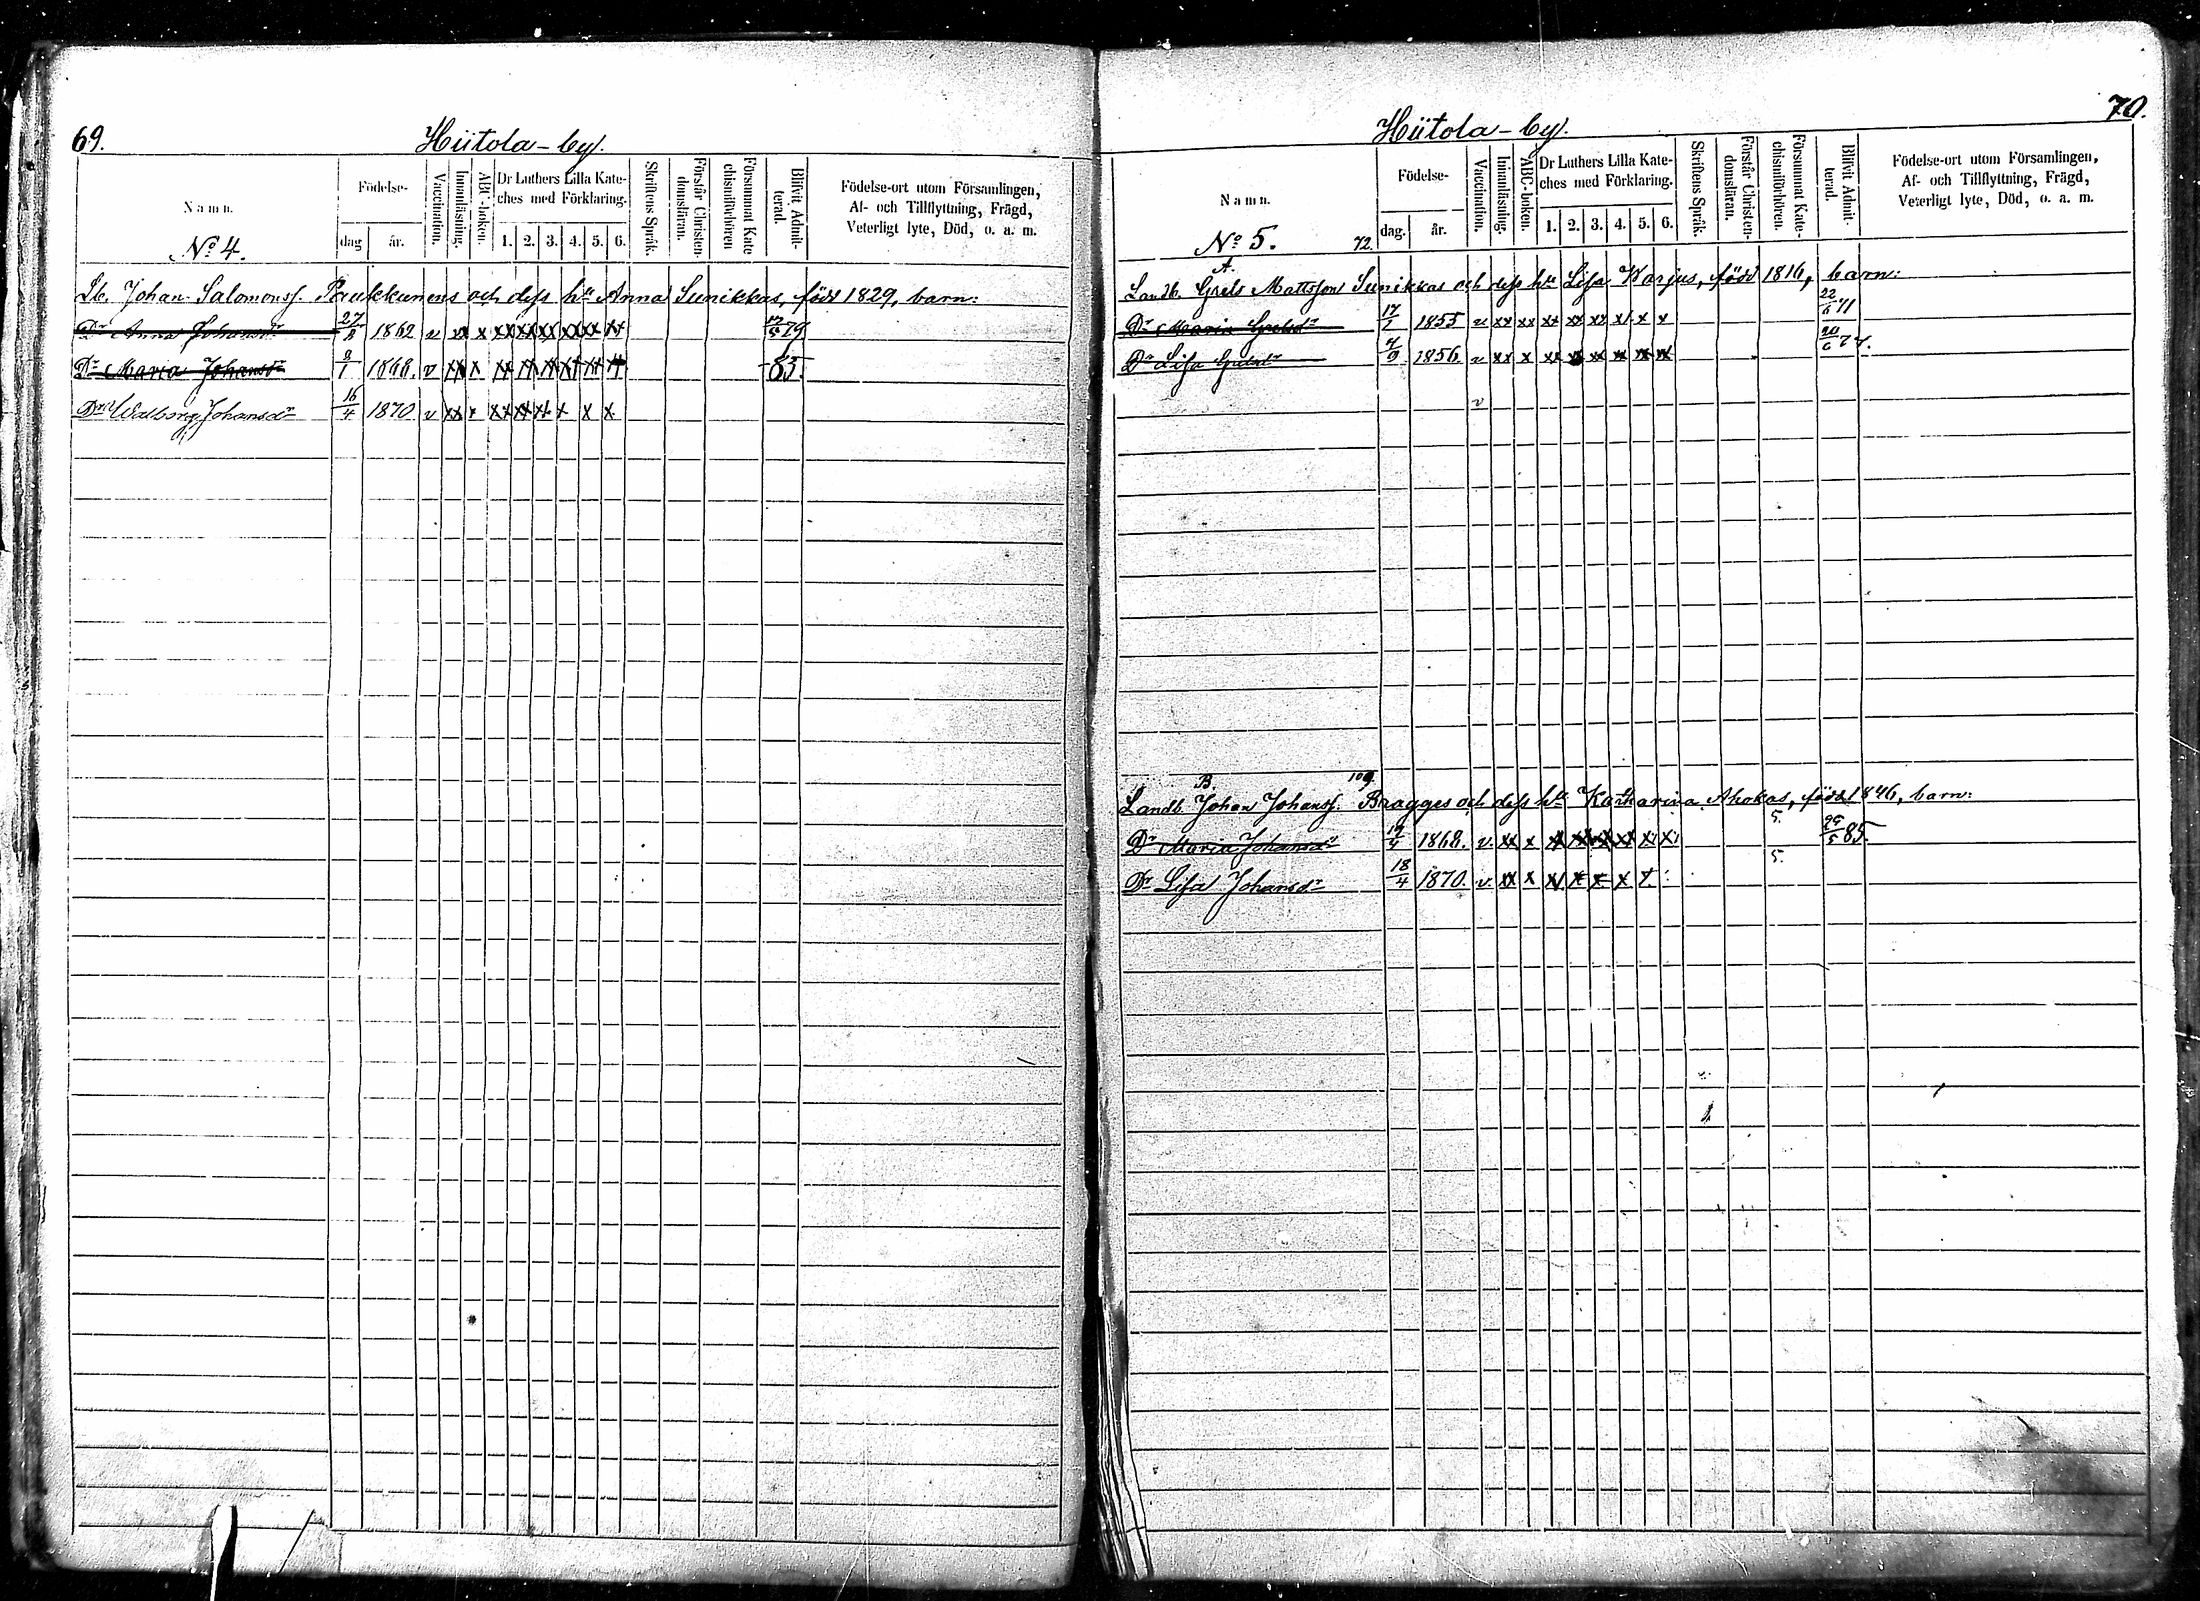 69.
Hiitola-by.
Namn.
No 4.
Födelse-
dag
år.
Vaccination.
Innanläsning.
ABC-boken.
Dr Luthers Lilla Kate-
ches med Förklaring.
1. 2. 3. 4. 5. 6.
Skriftens Språk.
Förstår Christen-
domsläran.
Försummat Kate
chismiförhören
Blifvit Admit-
terad.
Födelse-ort utom Församlingen,
Af- och Tillflyttning, Frägd,
Veterligt lyte, Död, o. a. m.
Lb. Johan Salomonss. Paukkunens och dess hu Anna Sunikkas, född 1829, barn:
Dr Anna Johansdr 1862 v xx x xx xx xx xx xx xx 79
Dr Maria Johansdr 1868. v xx x xx xx xx xx xx xx 85.
Dr Walborg Johansdr 16/4 1870 v xx x xx xx xx x x x
70.
Hiitola-by.
Namn.
No 5.
72.
Födelse-
dag.
år.
Vaccination.
Innanläsning.
ABC-boken.
Dr Luthers Lilla Kate-
ches med Förklaring.
1. 2. 3. 4. 5. 6.
Skriftens Språk.
Förstår Christen-
domsläran.
Försummat Kate-
chismiförhören.
Blifvit Admit-
terad.
Födelse-ort utom Församlingen,
Af- och Tillflyttning, Frägd,
Veterligt lyte, Död, o. a. m.
A.
Landb. Grels Mattsson Sunikkas och dess hu Lisa Karjus, född 1816, barn:
Dr Maria Grelsdr 1855 v xx xx xx xx xx xx x x 71
Dr Lisa Grelsdr 1856. v xx x xx xx xx xx xx
v
B. 109.
Landb. Johan Johanss. Bragges och dess hu Katharina Ahokas, född 1846, barn:
5.
Dr Maria Johansdr 1868. v. xx x xx xx xx xx x x 85.
5.
Dr Lisa Johansdr 18/4 1870. v. xx x xx x x x x